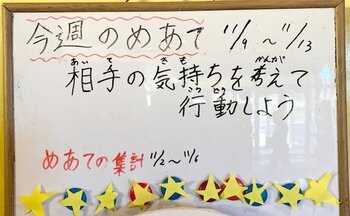 今週のめあて 11/9 〜 11/13
相手の気持ちを考えて
行動しよう
めあての集計 11/2〜11/6